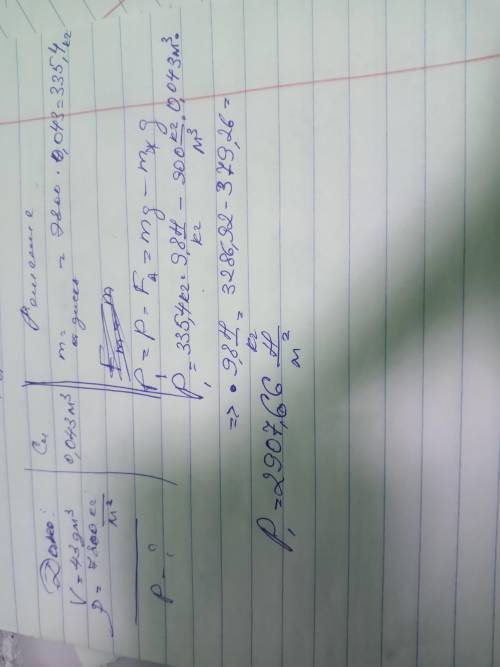 Дано:
V = 43 дм³
ρ = 7800 кг/м²
P - ?
Си
0,043 м³
Решение
m = 7800 · 0,043 = 335,4 кг
P₁ = P - Fₐ = mg - mж g
P₁ = 335,4 кг · 9,8 Н/кг - 900 кг/м³ · 0,043 м³ ·
=> · 9,8 Н/кг = 3286,92 - 379,26 =
P₁ = 2907,66 Н/м²